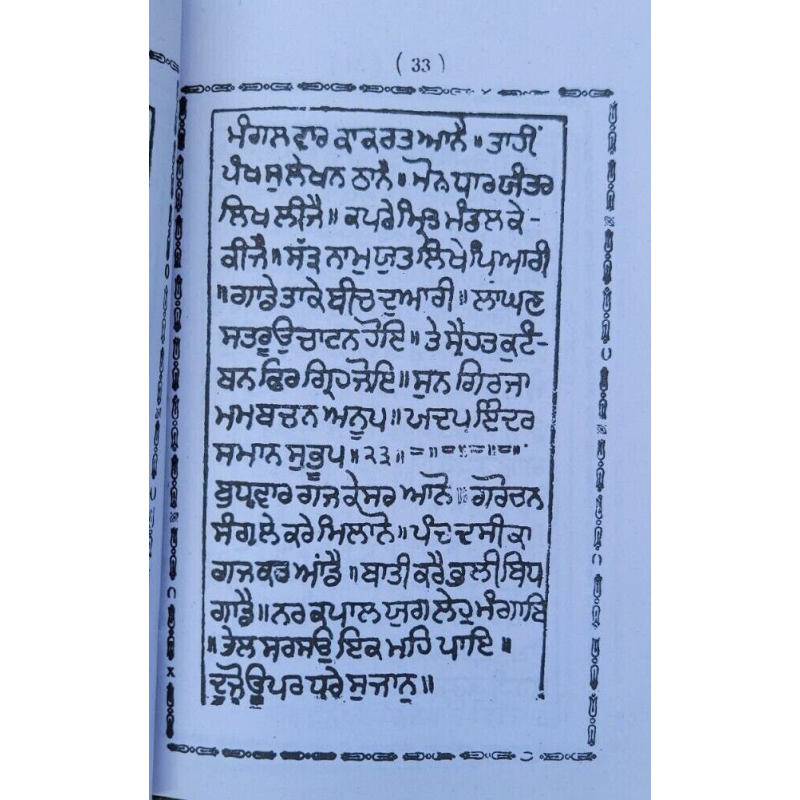 ( 33 )
ਮੰਗਲਵਾਰ ਕਾਕਰਤ ਆਨੈ॥ ਤਾਹੀਂ
ਪੰਖ ਸੁਲੇਖਨ ਠਾਨੈ॥ ਮੋਨ ਧਾਰ ਯੰਤਰ
ਲਿਖ ਲੀਜੈ॥ ਕਪਰੇ ਮੰਡਲ ਕੇ-
ਕੀਜੈ॥ ਸੱਤ੍ਰ ਨਾਮੁ ਯੁਤ ਲਿਖੇ ਪਿਆਰੀ
॥ ਗਾਡੇ ਤਾਕੇ ਬੀਚ ਦੁਆਰੀ॥ ਲਾਘਣ
ਸਤਰੂ ਉਚਾਟਨ ਹੋਇ॥ ਤੇ ਸੈਹਤ ਕੁਟੰ-
ਬਨ ਫਿਰ ਗ੍ਰਿਹ ਜੋਇ॥ ਸੁਨ ਗਿਰਜਾ
ਮਮ ਬਚਨ ਅਨੂਪ॥ ਯਦਪ ਇੰਦਰ
ਸਮਾਨ ਸੁਭੂਪ॥੨੩॥
ਬੁਧਵਾਰ ਗਜ ਕੇਸਰ ਆਨੋ॥ ਗੋਰੋਚਨ
ਸੰਗ ਲੇ ਕਰੇ ਮਿਲਾਨੋ॥ ਪੰਚਦਸੀ ਕਾ
ਗਜ ਕਰ ਆਂਡੈ॥ ਬਾਤੀ ਕਰੈ ਭਲੀ ਬਿਧ
ਗਾਡੈ॥ ਨਰ ਕਪਾਲ ਯੁਗ ਲੇਹੁ ਮੰਗਾਇ
॥ ਤੇਲ ਸਰਸਉ ਇਕ ਮਹਿ ਪਾਇ॥
ਦੂਜੋ ਊਪਰ ਧਰੇ ਸੁਜਾਨੁ॥